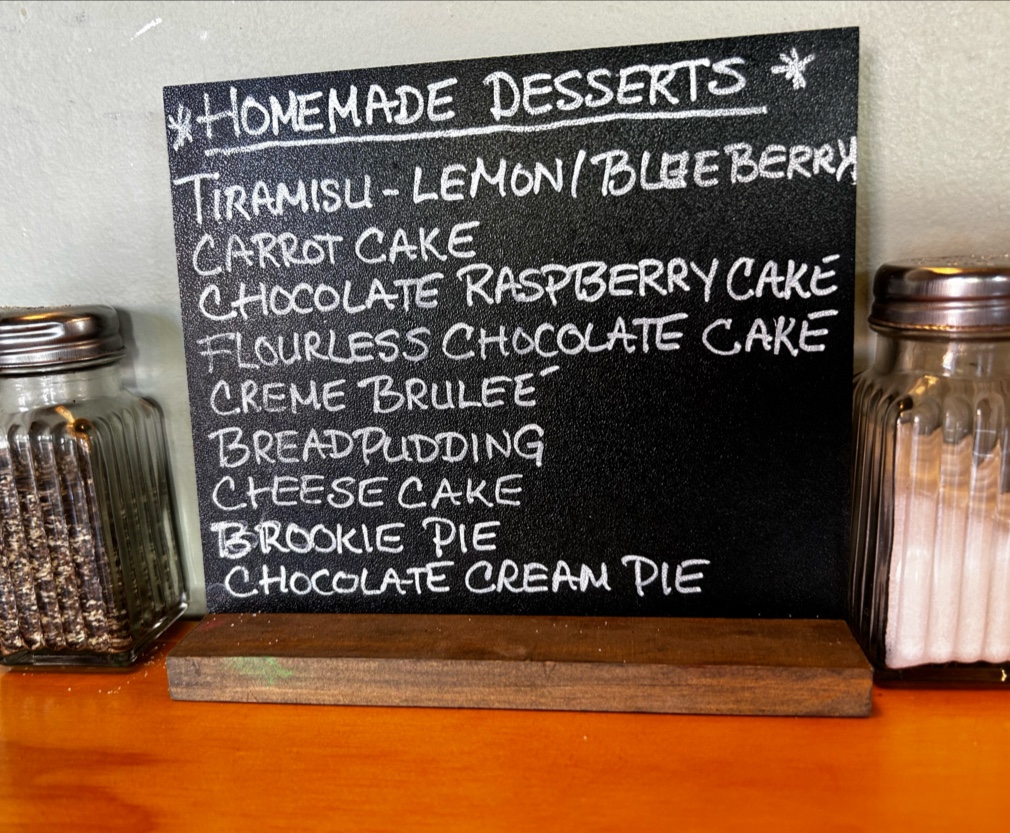 * HOMEMADE DESSERTS *
TIRAMISU - LEMON/BLUEBERRY
CARROT CAKE
CHOCOLATE RASPBERRY CAKE
FLOURLESS CHOCOLATE CAKE
CREME BRULEÉ
BREAD PUDDING
CHEESE CAKE
BROOKIE PIE
CHOCOLATE CREAM PIE